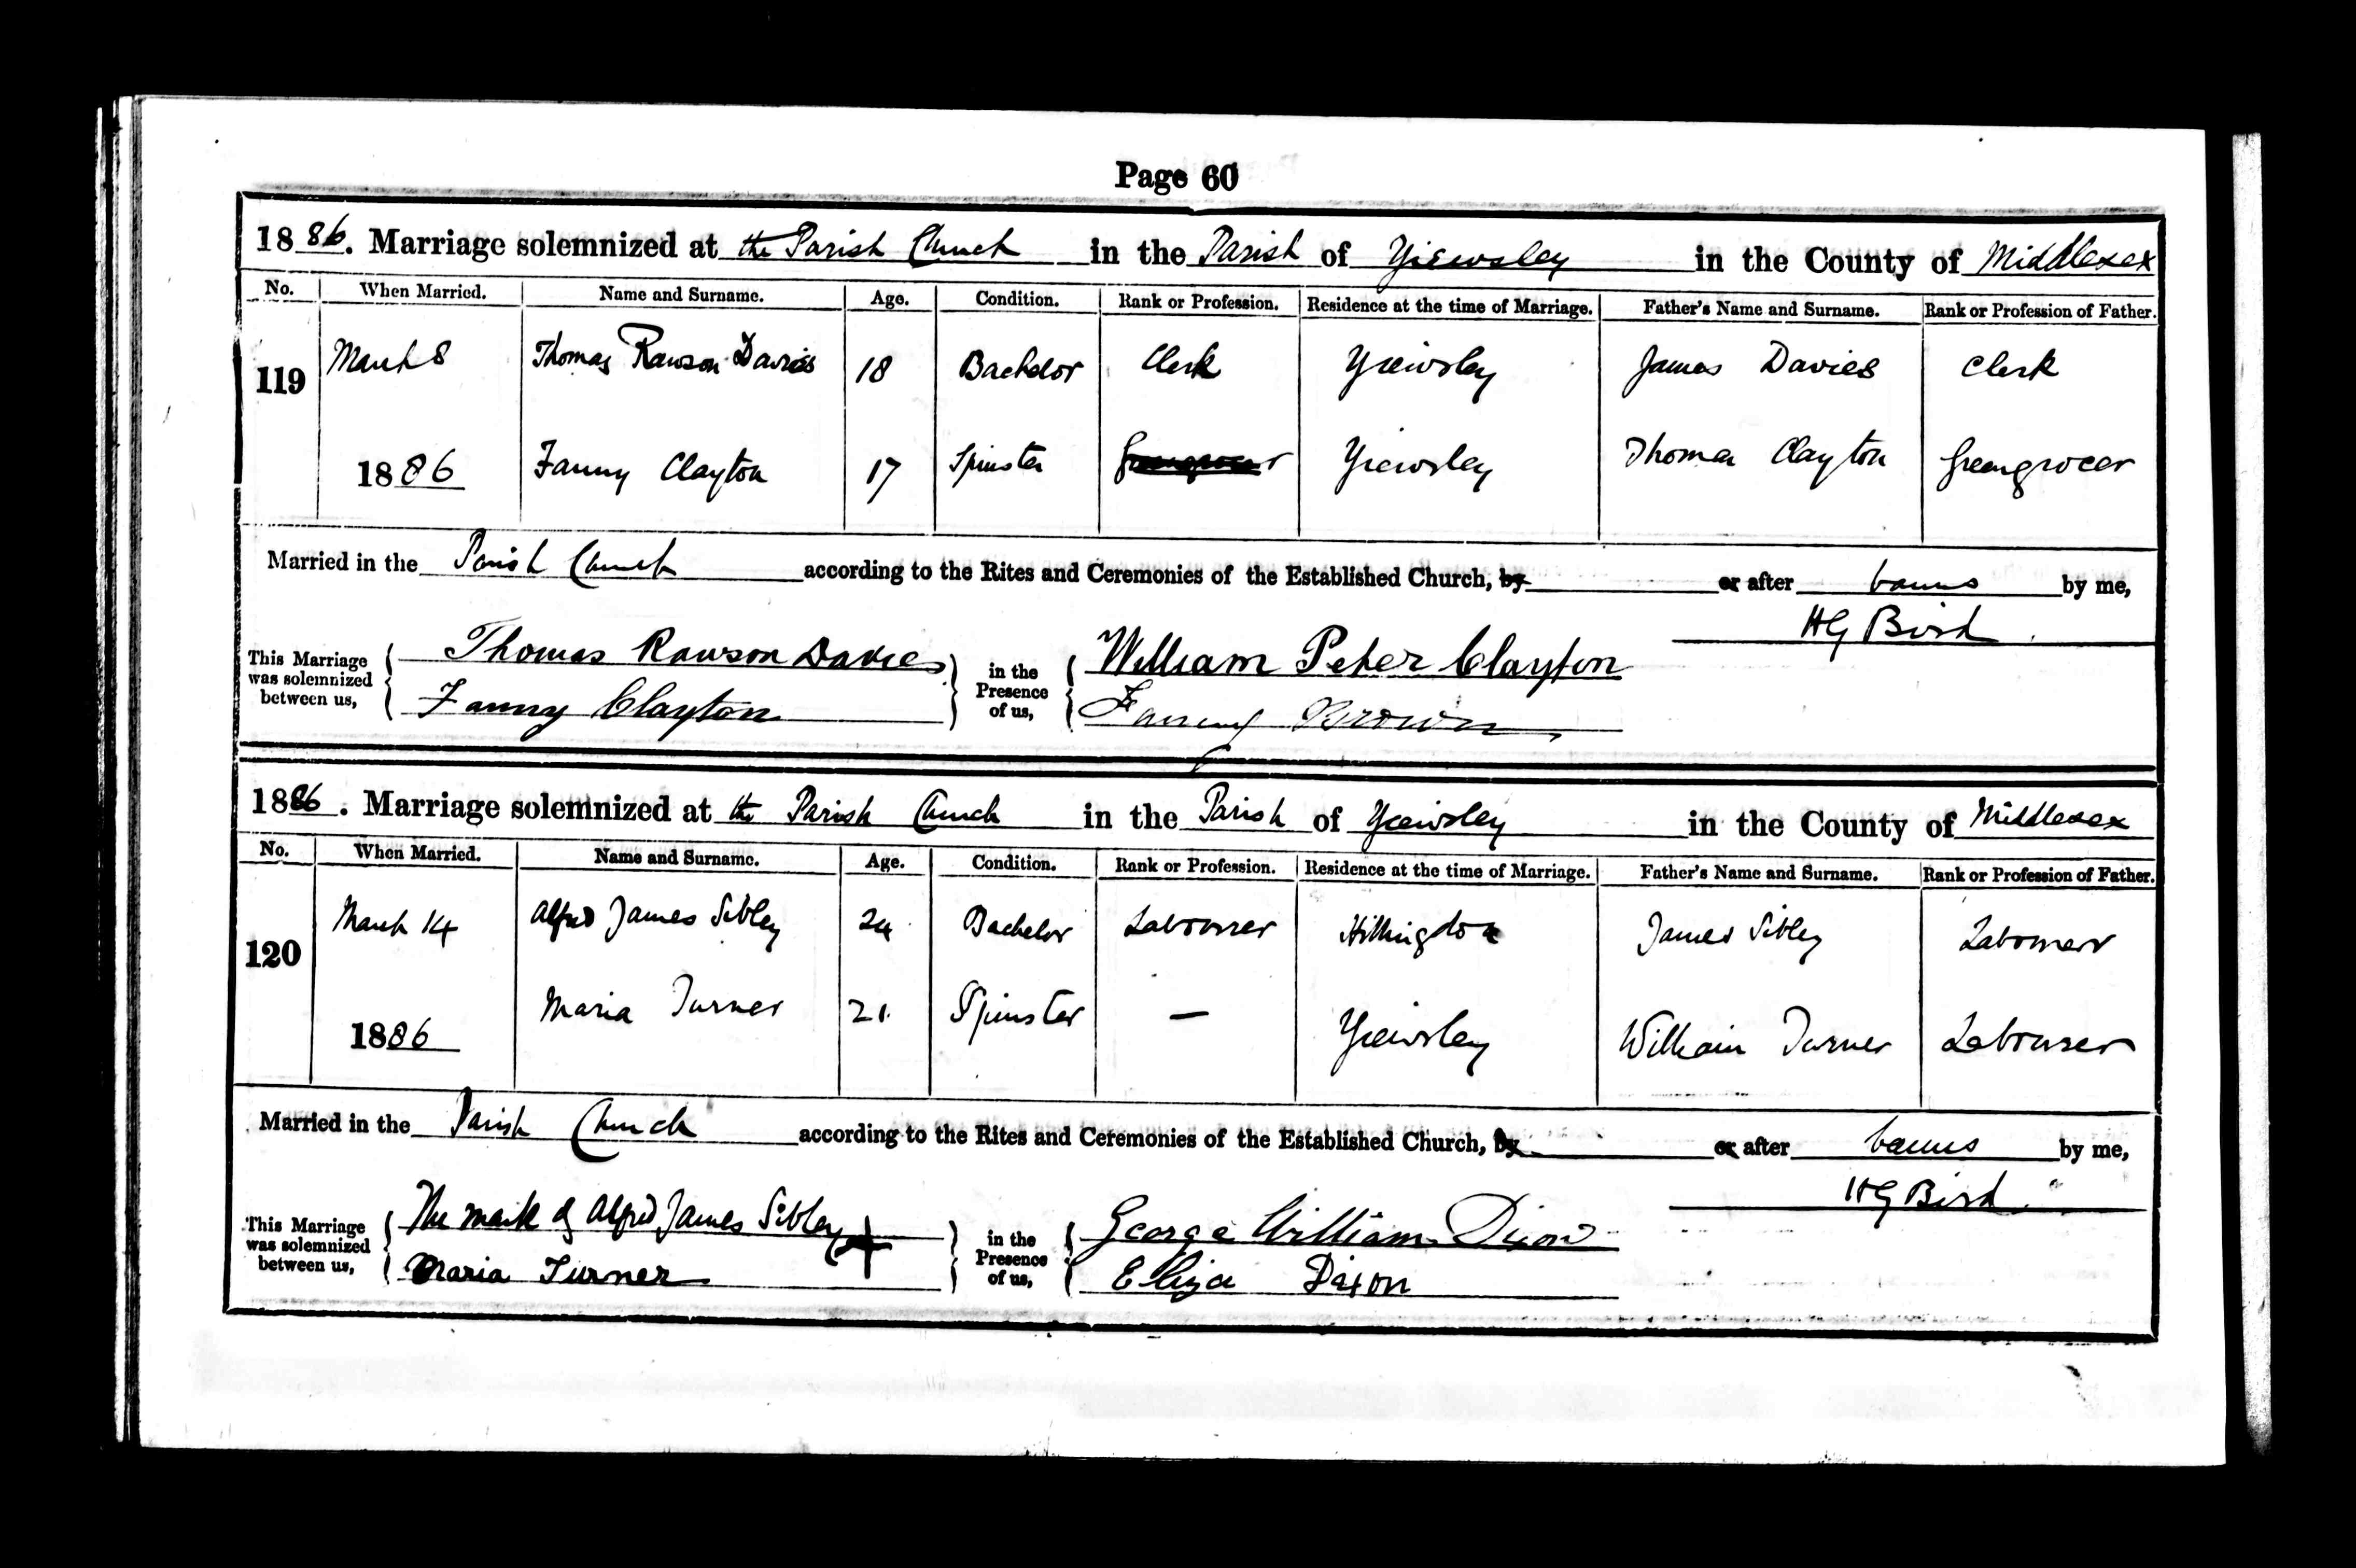 Page 60
1886. Marriage solemnized at the Parish Church in the Parish of Yiewsley in the County of Middlesex
No. When Married. Name and Surname. Age. Condition. Rank or Profession. Residence at the time of Marriage. Father's Name and Surname. Rank or Profession of Father.
119 March 8 Thomas Rawson Davies 18 Bachelor Clerk Yiewsley James Davies Clerk
1886 Fanny Clayton 17 Spinster Greengrocer Yiewsley Thomas Clayton Greengrocer
Married in the Parish Church according to the Rites and Ceremonies of the Established Church, by or after banns by me,
HG Bird
This Marriage was solemnized between us, Thomas Rawson Davies in the Presence of us, William Peter Clayton
Fanny Clayton Fanny Brown
1886. Marriage solemnized at the Parish Church in the Parish of Yiewsley in the County of Middlesex
No. When Married. Name and Surname. Age. Condition. Rank or Profession. Residence at the time of Marriage. Father's Name and Surname. Rank or Profession of Father.
120 March 14 Alfred James Sibley 24 Bachelor Labourer Hillingdon James Sibley Labourer
1886 Maria Turner 21. Spinster — Yiewsley William Turner Labourer
Married in the Parish Church according to the Rites and Ceremonies of the Established Church, by or after banns by me,
HG Bird.
This Marriage was solemnized between us, The mark of Alfred James Sibley + in the Presence of us, George William Dixon
Maria Turner Eliza Dixon